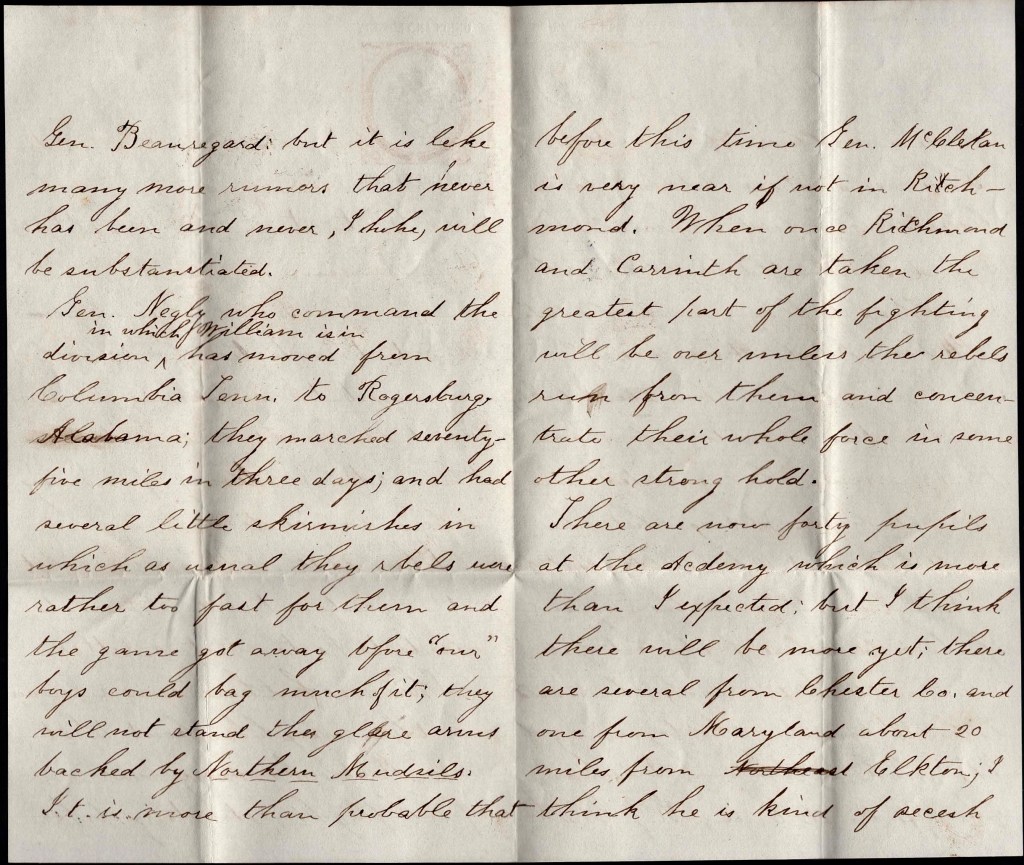 Gen. Beauregard: but it is like
many more rumors that never
has been and never, I hope, will
be substanstiated.
Gen. Negly who command the
in which William is in
division ^ has moved from
Columbia Tenn. to Rogersburg
Alabama; they marched seventy-
five miles in three days; and had
several little skirmishes in
which as usual they rbels were
rather too fast for them and
the game got away bfore "our"
boys could bag much of it; they
will not stand the glare arms
backed by Northern Mudsils.
I.t. is more than probable that
before this time Gen. McClellan
is very near if not in Rich-
mond. When once Richmond
and Corrinth are taken the
greatest part of the fighting
will be over unless the rebels
run from them and concen-
trate their whole force in some
other strong hold.
There are now forty pupils
at the Acdemy which is more
than I expected; but I think
there will be more yet; there
are several from Chester Co. and
one from Maryland about 20
miles from Northeast Elkton; I
think he is kind of secesh